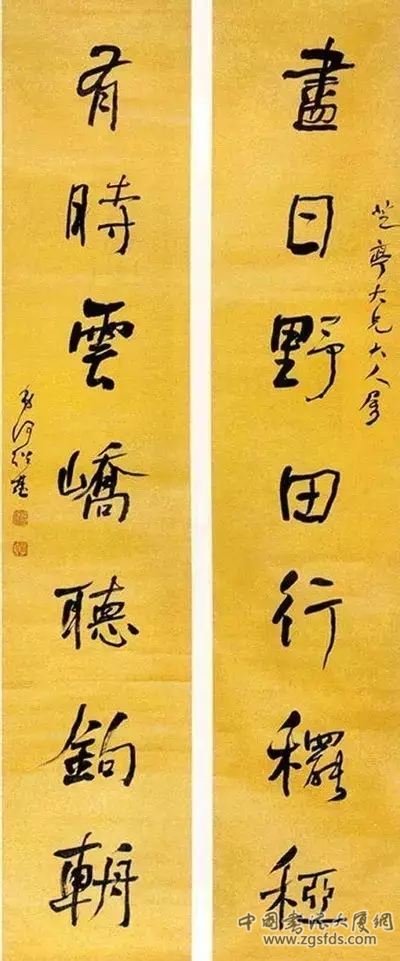 芝亭大兄大人屬
盡日野田行穲稏
有時雲嶠聽鉤輈
何紹基
中國書法大厦網
www.zgsfds.com